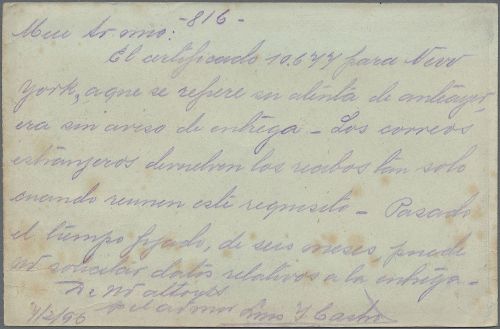 -816-
Muy Sr mio:
El certificado 10.677 para New
York, a que se refiere su atenta de anteayer,
era sin aviso de entrega - Los correos
estranjeros devuelven los recibos tan solo
cuando reunen este requisito - Pasado
el tiempo fijado, de seis meses puede
solicitar datos relativos a la entrega-
De
4/2/96 Luis